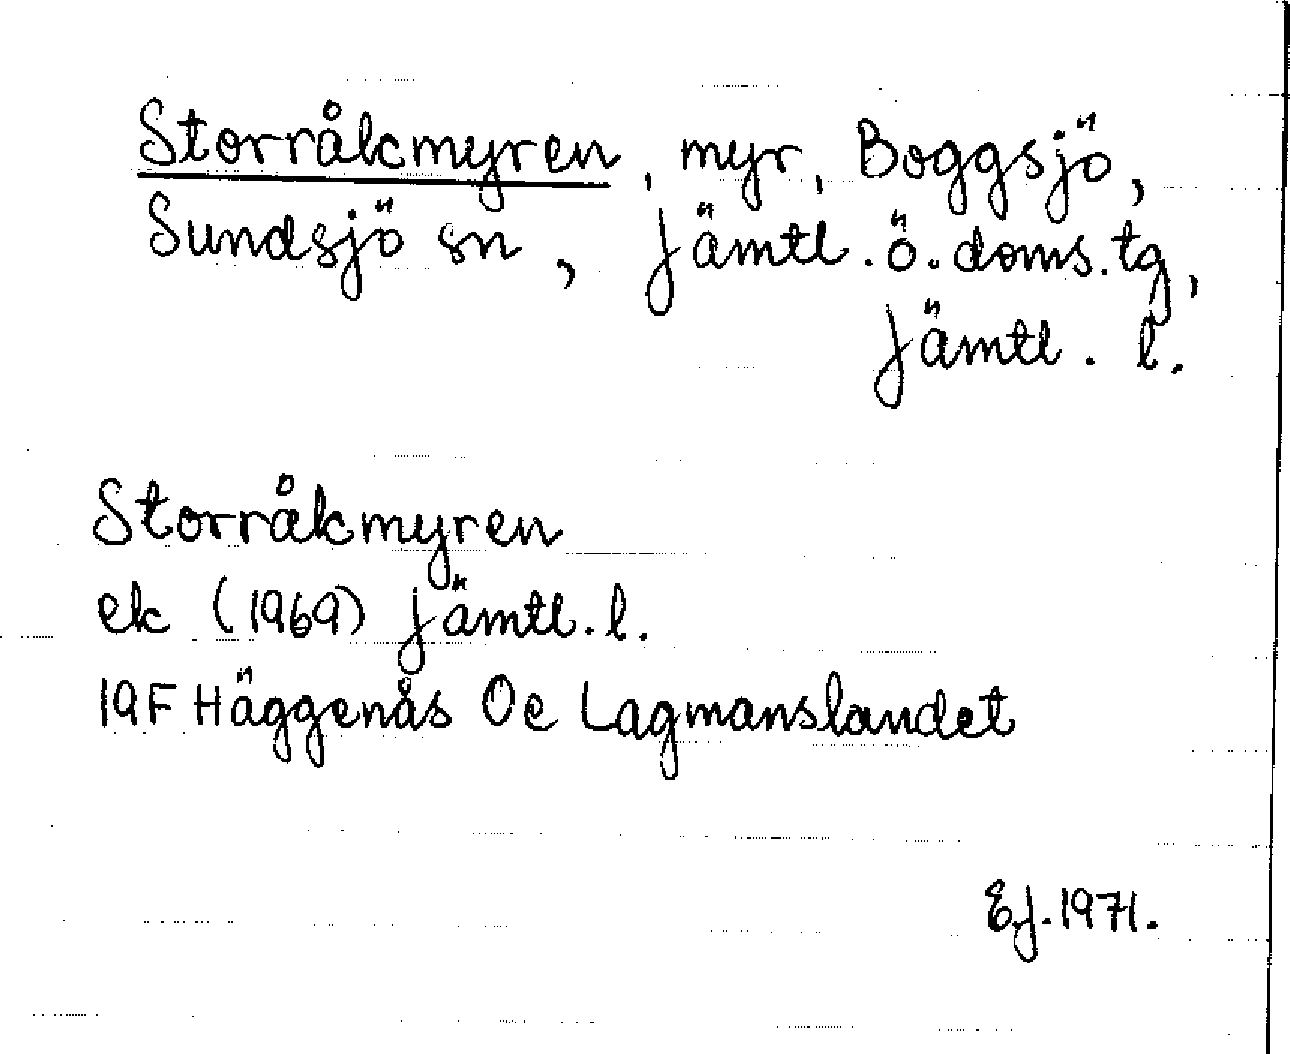 Storråkmyren, myr, Boggsjö,
Sundsjö sn, Jämtl.ö.doms.tg,
Jämtl. l.
Storråkmyren
ek (1969) Jämtl.l.
19F Häggenås Oe Lagmanslandet
EJ.1971.